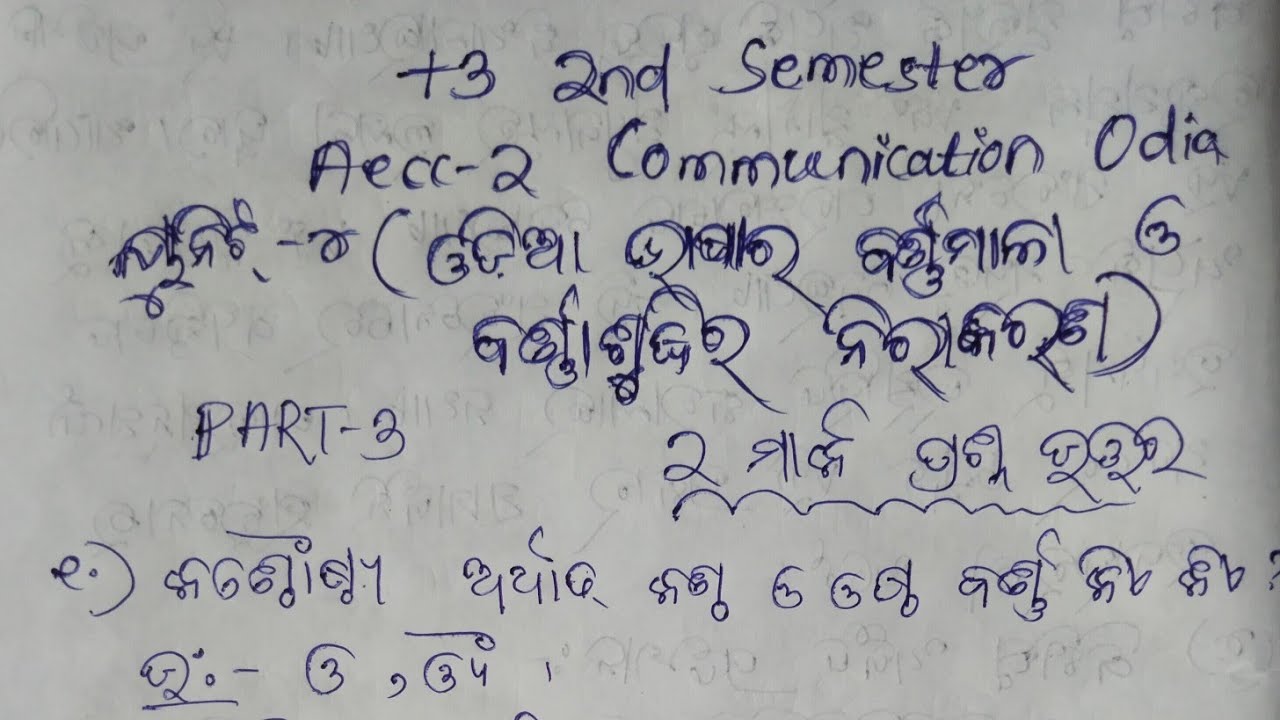 +3 2nd Semester
Aecc-2 Communication Odia
ୟୁନିଟ୍ -୪ (ଓଡ଼ିଆ ଭାଷାର ବର୍ଣ୍ଣମାଳା ଓ
ବର୍ଣ୍ଣାଶୁଦ୍ଧିର ନିରାକରଣ)
PART-3
୨ ମାର୍କ ପ୍ରଶ୍ନ ଉତ୍ତର
୧.) କଣ୍ଠୌଷ୍ଠ୍ୟ ଅର୍ଥାତ୍ କଣ୍ଠ ଓ ଓଷ୍ଠ ବର୍ଣ୍ଣ କିଏ କିଏ ?
ଉ:- ଓ , ଔ ।